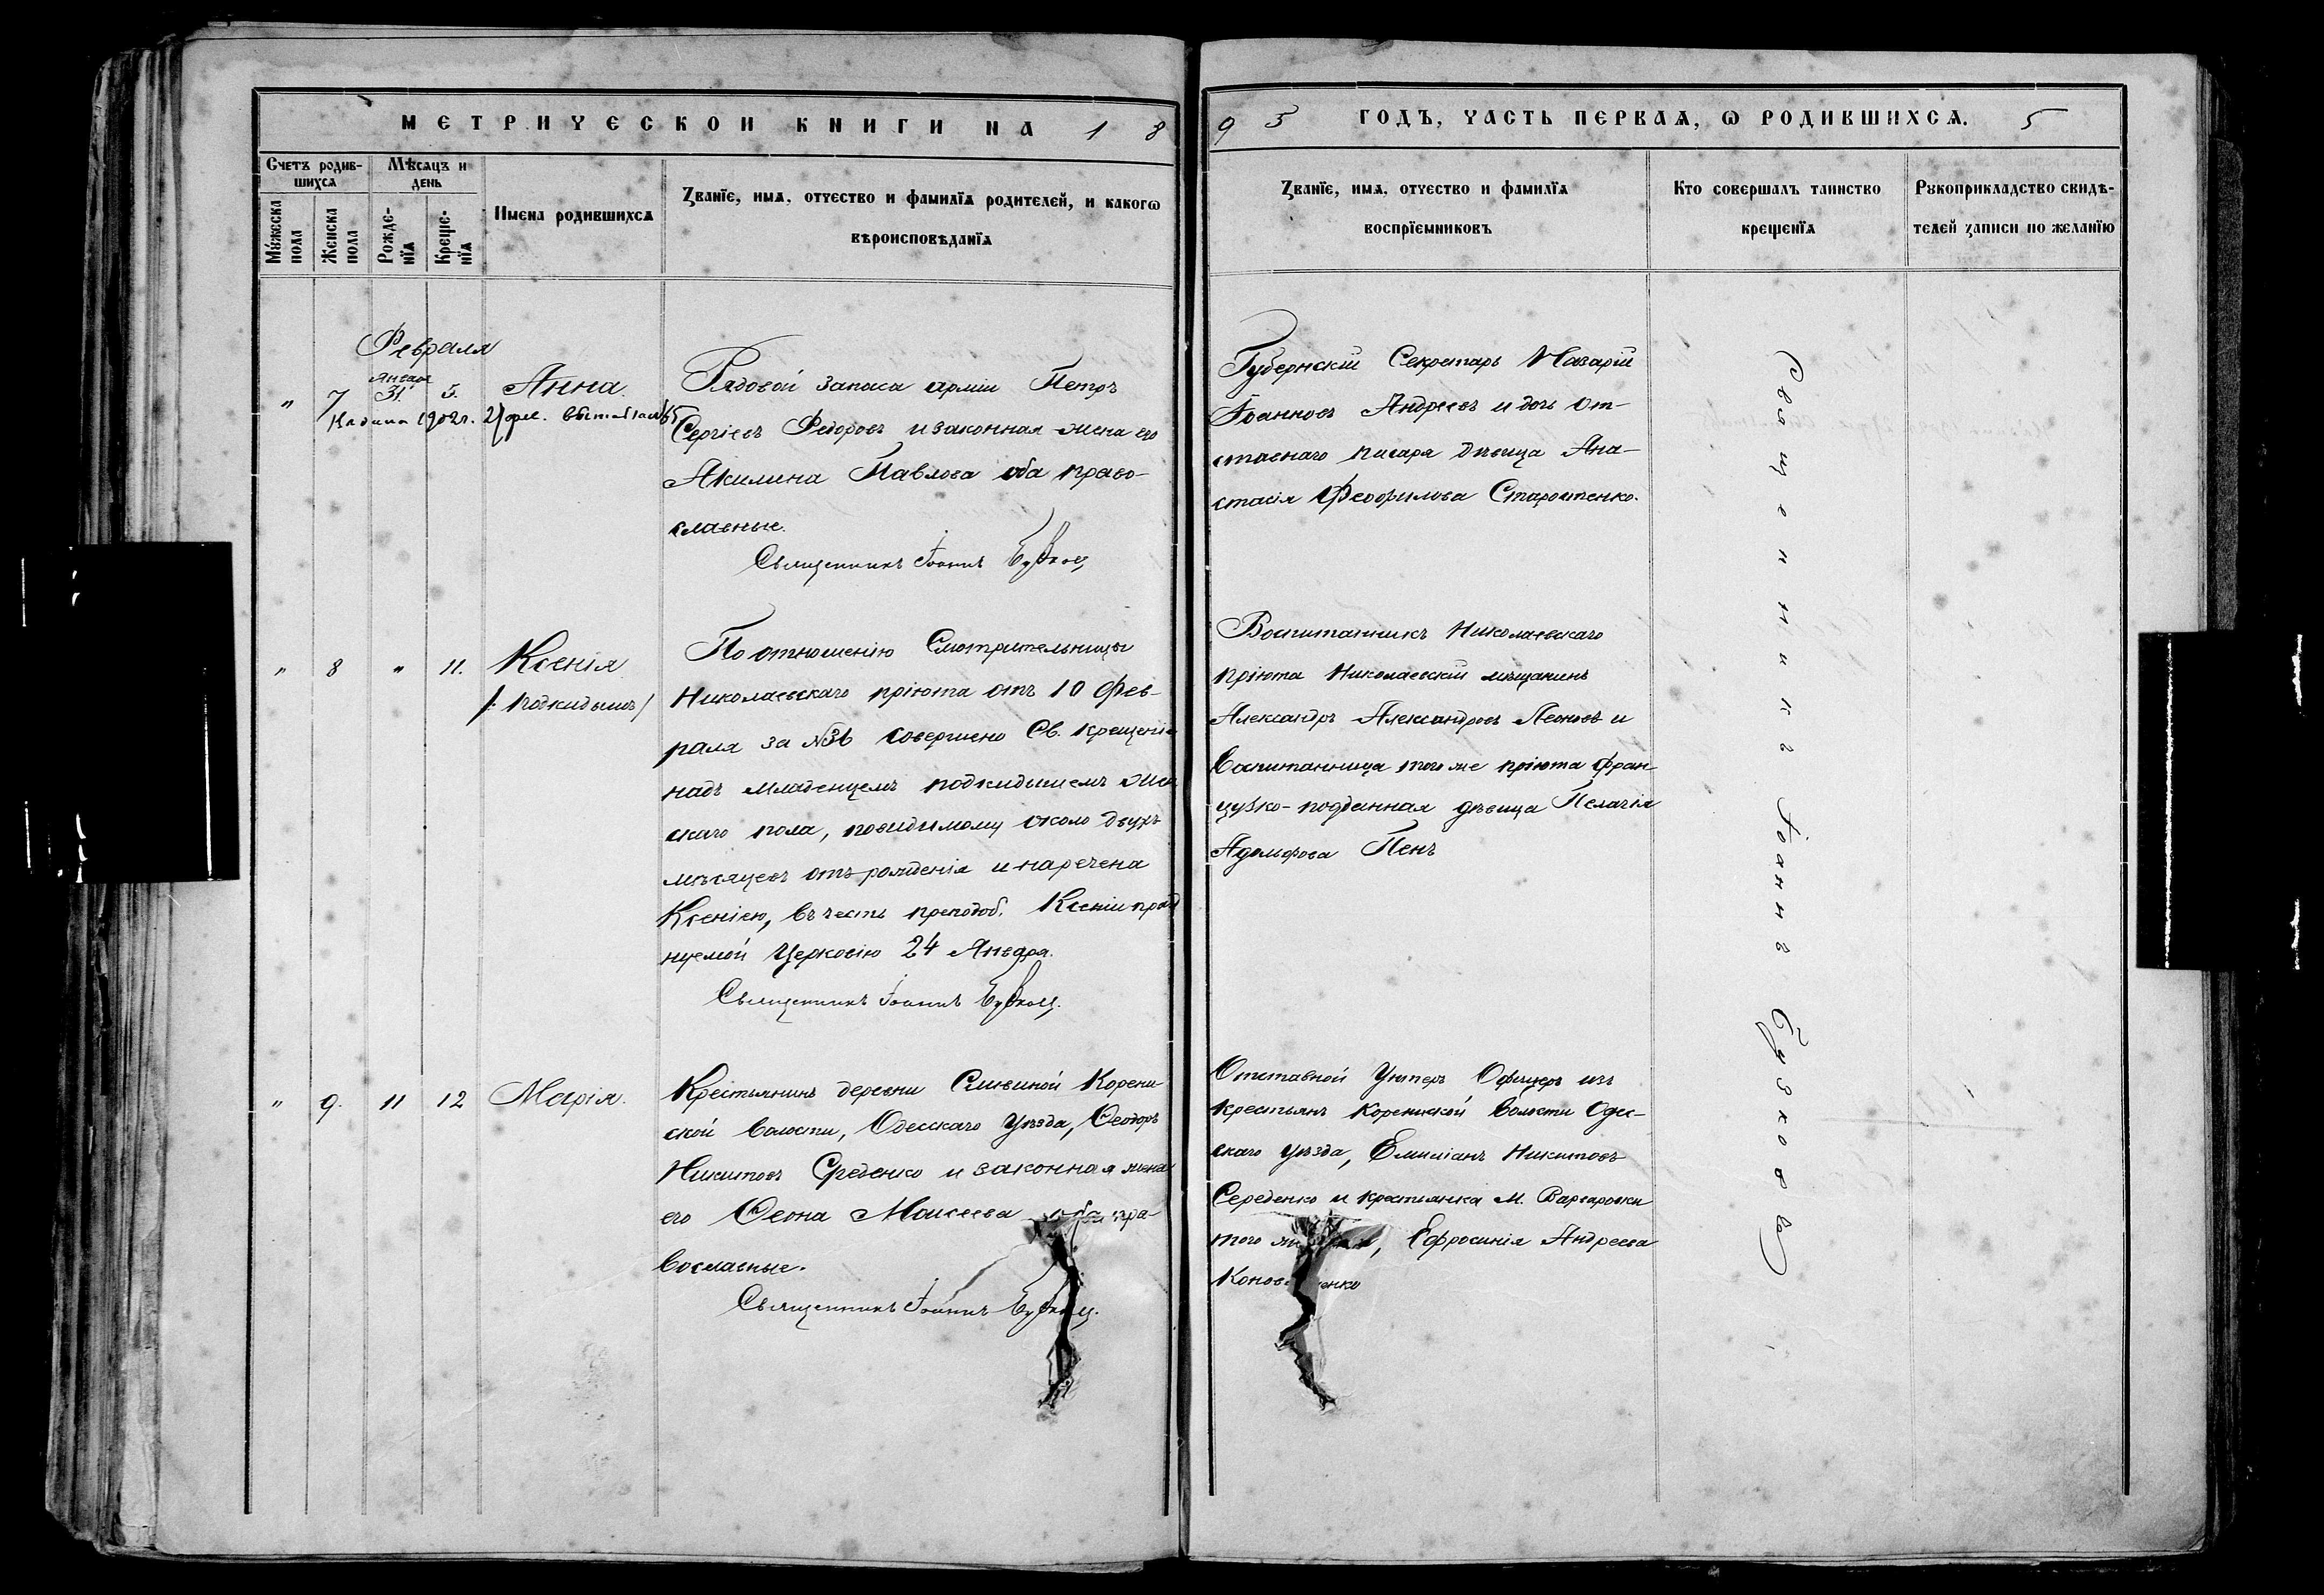 МЕТРИЧЕСКОЙ КНИГИ НА 18
95 ГОДЪ, ЧАСТЬ ПЕРВАЯ, Ѡ РОДИВШИХСЯ. 5
Счетъ родив-
шихся
Мѣсяцъ и
день
Мꙋжеска
пола
Женска
пола
Рожде-
нїя
Креще-
нїя
Имена родившихся
Званїе, имя, отчество и фамилїя родителей, и какогѡ
вѣроисповѣданїя
Званїе, имя, отчество и фамилїя
воспрїемниковъ
Кто совершалъ таинство
крещенїя
Рꙋкоприкладство свидѣ-
телей записи по желанїю
Февраля
" 7 Января 31. 5. Анна.
1902 г. 21
Рядовой запаса арміи Петръ
Сергіевъ Федоровъ и законная жена его
Акилина Павлова оба право-
славные.
Священникъ Іоаннъ
Губернскій Секретарь Назарій
Іоанновъ Андреевъ и дочь от-
ставнаго писаря дѣвица Ана-
стасія Феофилова
" 8 " 11. Ксенія
/: подкидышъ /
По отношенію Смотрительницы
Николаевскаго пріюта отъ 10 Фев-
раля за №36 совершено Св. Крещеніе
надъ младенцемъ подкидышемъ жен
скаго пола, повидимому около двухъ
мѣсяцевъ отъ рожденія и наречена
Ксеніею, въ честь преподоб. Ксеніи празд
нуемой Церковію 24 Января.
Священникъ Іоаннъ
Воспитанникъ Николаевскаго
пріюта Николаевскій мѣщанинъ
Александръ Александровъ Леоновъ и
Воспитанница того же пріюта фран-
цузко-подданная дѣвица Пелагія
Адольфова Пенъ
" 9. 11 12 Марія.
Крестьянинъ деревни Корени
ской волости, Одесскаго Уѣзда, Ѳеодоръ
Никитовъ Среденко и законная жена
его Ѳеона Моисеева оба пра-
вославные.
Священникъ Іоаннъ
Отставной Унтеръ Офицеръ изъ
крестьянъ Коренихской волости Одес-
скаго уѣзда, Емиліанъ Никитовъ
Середенко и крестьянка м. Варваровки
того, Ефросинія Андреева
Священникъ Іоаннъ Бузковъ